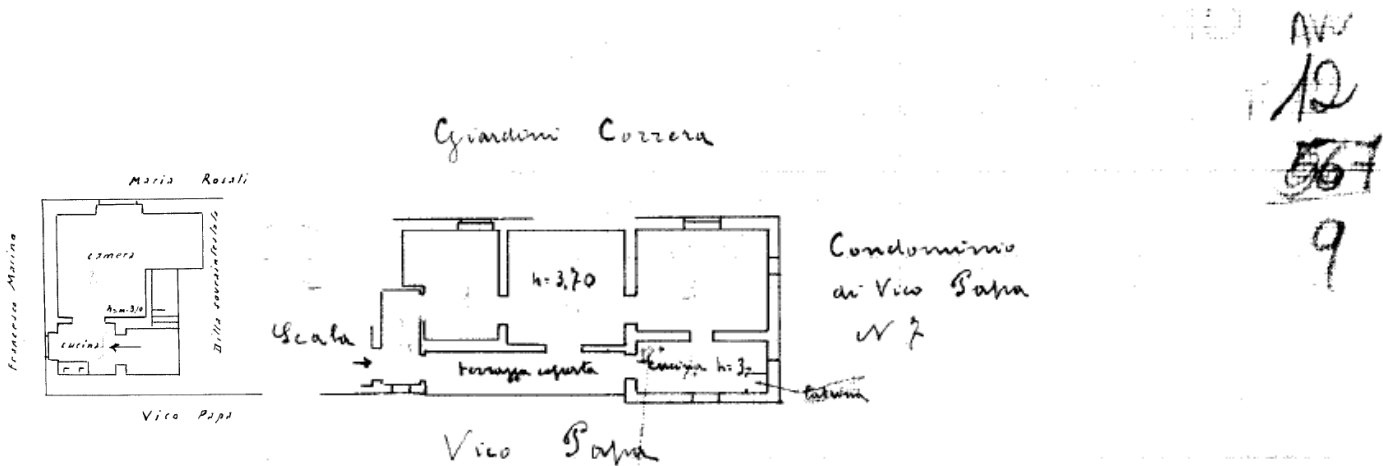 AVV
12
567
9
Giardini Correra
Maria Rosati
Francesco Marino
camera
h=m.3,10
cucina
Ditta sovraintestata
Vico Papa
Scala
h=3,70
terrazza coperta
cucina h=3,
latrina
Condominio
di Vico Papa
N 7
Vico Papa